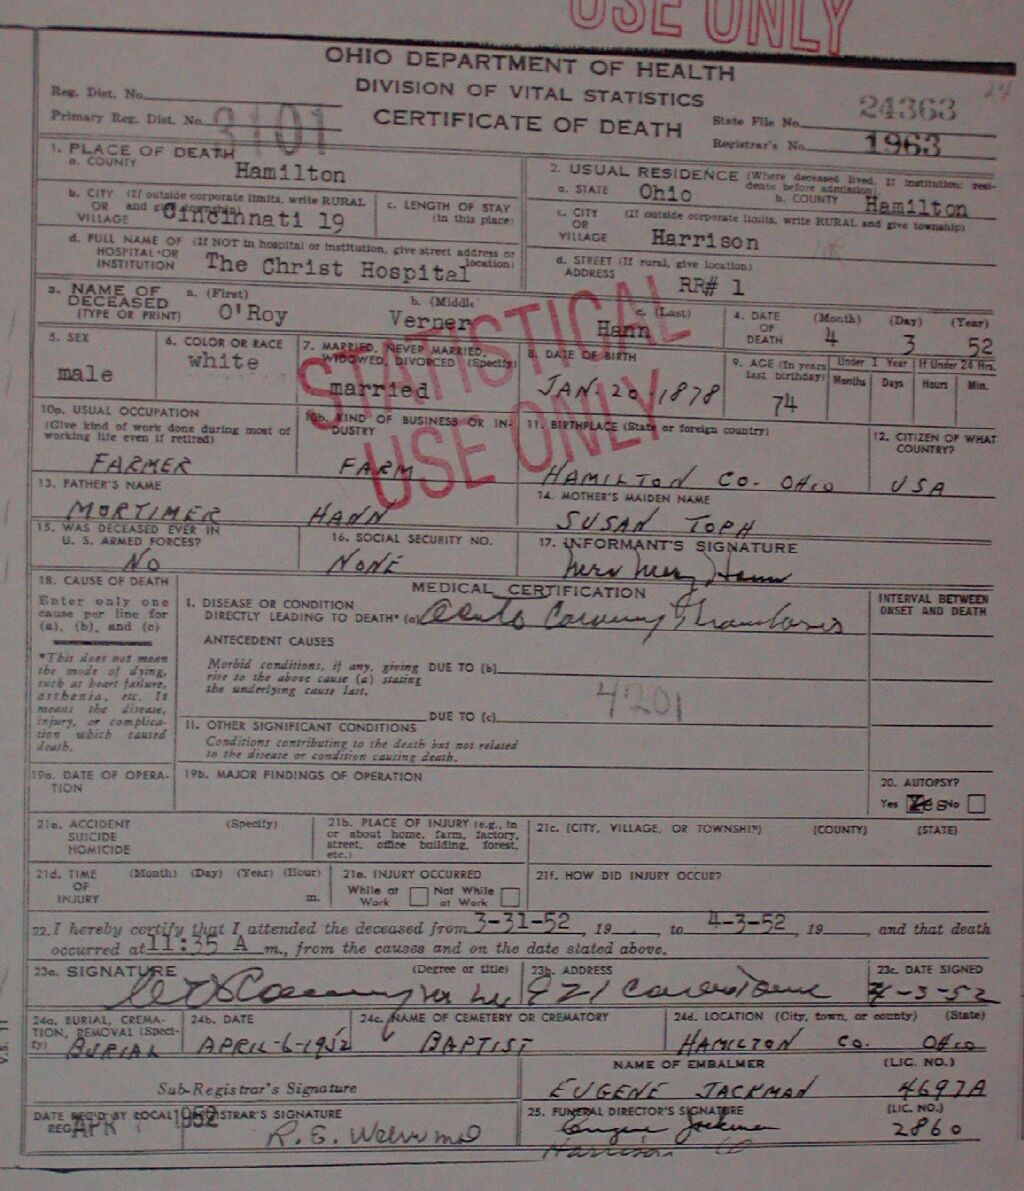 USE ONLY
24
OHIO DEPARTMENT OF HEALTH
DIVISION OF VITAL STATISTICS
CERTIFICATE OF DEATH
Reg. Dist. No.
Primary Reg. Dist. No. 3101
State File No. 24363
Registrar's No. 1963
1. PLACE OF DEATH
a. COUNTY
Hamilton
b. CITY (If outside corporate limits, write RURAL
OR and give township)
VILLAGE Cincinnati 19
c. LENGTH OF STAY
(in this place)
d. FULL NAME OF (If NOT in hospital or institution, give street address or
HOSPITAL OR location)
INSTITUTION The Christ Hospital
2. USUAL RESIDENCE (Where deceased lived. If institution: resi-
dence before admission).
a. STATE Ohio
b. COUNTY Hamilton
c. CITY (If outside corporate limits, write RURAL and give township)
OR
VILLAGE Harrison
d. STREET (If rural, give location)
ADDRESS RR# 1
3. NAME OF
DECEASED
(TYPE OR PRINT)
a. (First)
O'Roy
b. (Middle
Verner
c. (Last)
Hann
4. DATE
OF
DEATH
(Month) (Day) (Year)
4 3 52
5. SEX
male
6. COLOR OR RACE
white
7. MARRIED, NEVER MARRIED,
WIDOWED, DIVORCED (Specify)
married
8. DATE OF BIRTH
JAN 20 1878
9. AGE (In years
last birthday)
74
Under 1 Year
Months Days
If Under 24 Hrs.
Hours Min.
STATISTICAL
USE ONLY
10a. USUAL OCCUPATION
(Give kind of work done during most of
working life even if retired)
FARMER
10b. KIND OF BUSINESS OR IN-
DUSTRY
FARM
11. BIRTHPLACE (State or foreign country)
HAMILTON CO. OHIO
12. CITIZEN OF WHAT
COUNTRY?
USA
13. FATHER'S NAME
MORTIMER HANN
14. MOTHER'S MAIDEN NAME
SUSAN TOPH
15. WAS DECEASED EVER IN
U. S. ARMED FORCES?
NO
16. SOCIAL SECURITY NO.
NONE
17. INFORMANT'S SIGNATURE
Hann
18. CAUSE OF DEATH
Enter only one
cause per line for
(a), (b), and (c)
*This does not mean
the mode of dying,
such as heart failure,
asthenia, etc. It
means the disease,
injury, or complica-
tion which caused
death.
MEDICAL CERTIFICATION
I. DISEASE OR CONDITION
DIRECTLY LEADING TO DEATH* (a) Acute Coronary Thrombosis
ANTECEDENT CAUSES
Morbid conditions, if any, giving DUE TO (b)
rise to the above cause (a) stating
the underlying cause last.
4201
DUE TO (c)
II. OTHER SIGNIFICANT CONDITIONS
Conditions contributing to the death but not related
to the disease or condition causing death.
INTERVAL BETWEEN
ONSET AND DEATH
19a. DATE OF OPERA-
TION
19b. MAJOR FINDINGS OF OPERATION
20. AUTOPSY?
Yes Yes No
21a. ACCIDENT (Specify)
SUICIDE
HOMICIDE
21b. PLACE OF INJURY (e.g., in
or about home, farm, factory,
street, office building, forest,
etc.)
21c. (CITY, VILLAGE, OR TOWNSHIP) (COUNTY) (STATE)
21d. TIME (Month) (Day) (Year) (Hour)
OF
INJURY m.
21e. INJURY OCCURRED
While at Not While
Work at Work
21f. HOW DID INJURY OCCUR?
22. I hereby certify that I attended the deceased from 3-31-52, 19 , to 4-3-52, 19 , and that death
occurred at 11:35 A m., from the causes and on the date stated above.
23a. SIGNATURE (Degree or title)
23b. ADDRESS
23c. DATE SIGNED
4-3-52
24a. BURIAL, CREMA-
TION, REMOVAL (Speci-
fy) BURIAL
24b. DATE
APRIL-6-1952
24c. NAME OF CEMETERY OR CREMATORY
BAPTIST
24d. LOCATION (City, town, or county) (State)
HAMILTON CO. OHIO
Sub-Registrar's Signature
NAME OF EMBALMER (LIC. NO.)
EUGENE JACKMAN 4697A
DATE REC'D BY LOCAL
REG. APR 1952
REGISTRAR'S SIGNATURE
25. FUNERAL DIRECTOR'S SIGNATURE (LIC. NO.)
Eugene Jackman 2860
Harrison O
V.S. 11